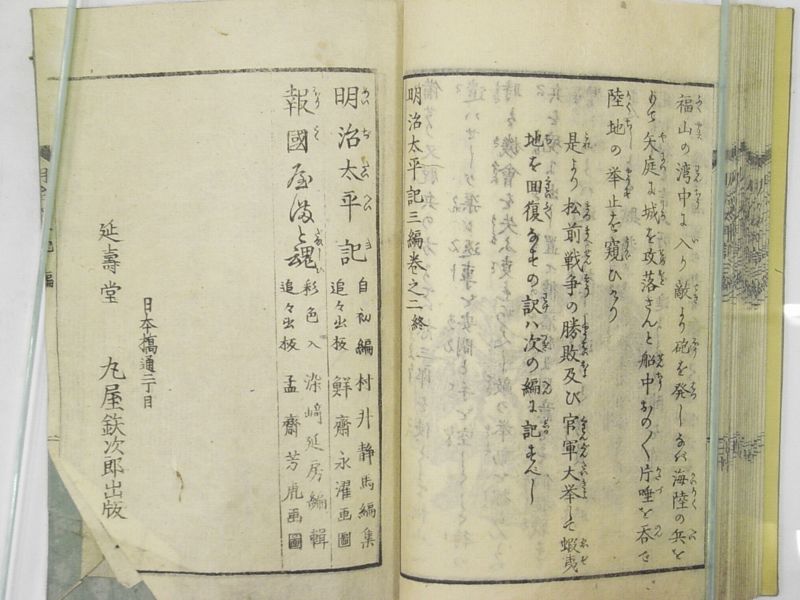 福山の湾中に入り敵より砲を発しなば海陸の兵を
もて矢庭に城を攻落さんと船中おの〱片唾を呑で
陸地の挙止を窺ひけり
是より松前戦争の勝敗及び官軍大挙して蝦夷
地を回復なすの訳ハ次の編に記すべし
明治太平記三編巻之二終
明治太平記
自初編
追々出板
村井静馬編集
鮮齋永濯画圖
報國屋満と魂
彩色入
追々出板
染﨑延房編輯
孟齋芳虎画圖
日本橋通二丁目
延壽堂 丸屋鉄次郎出版